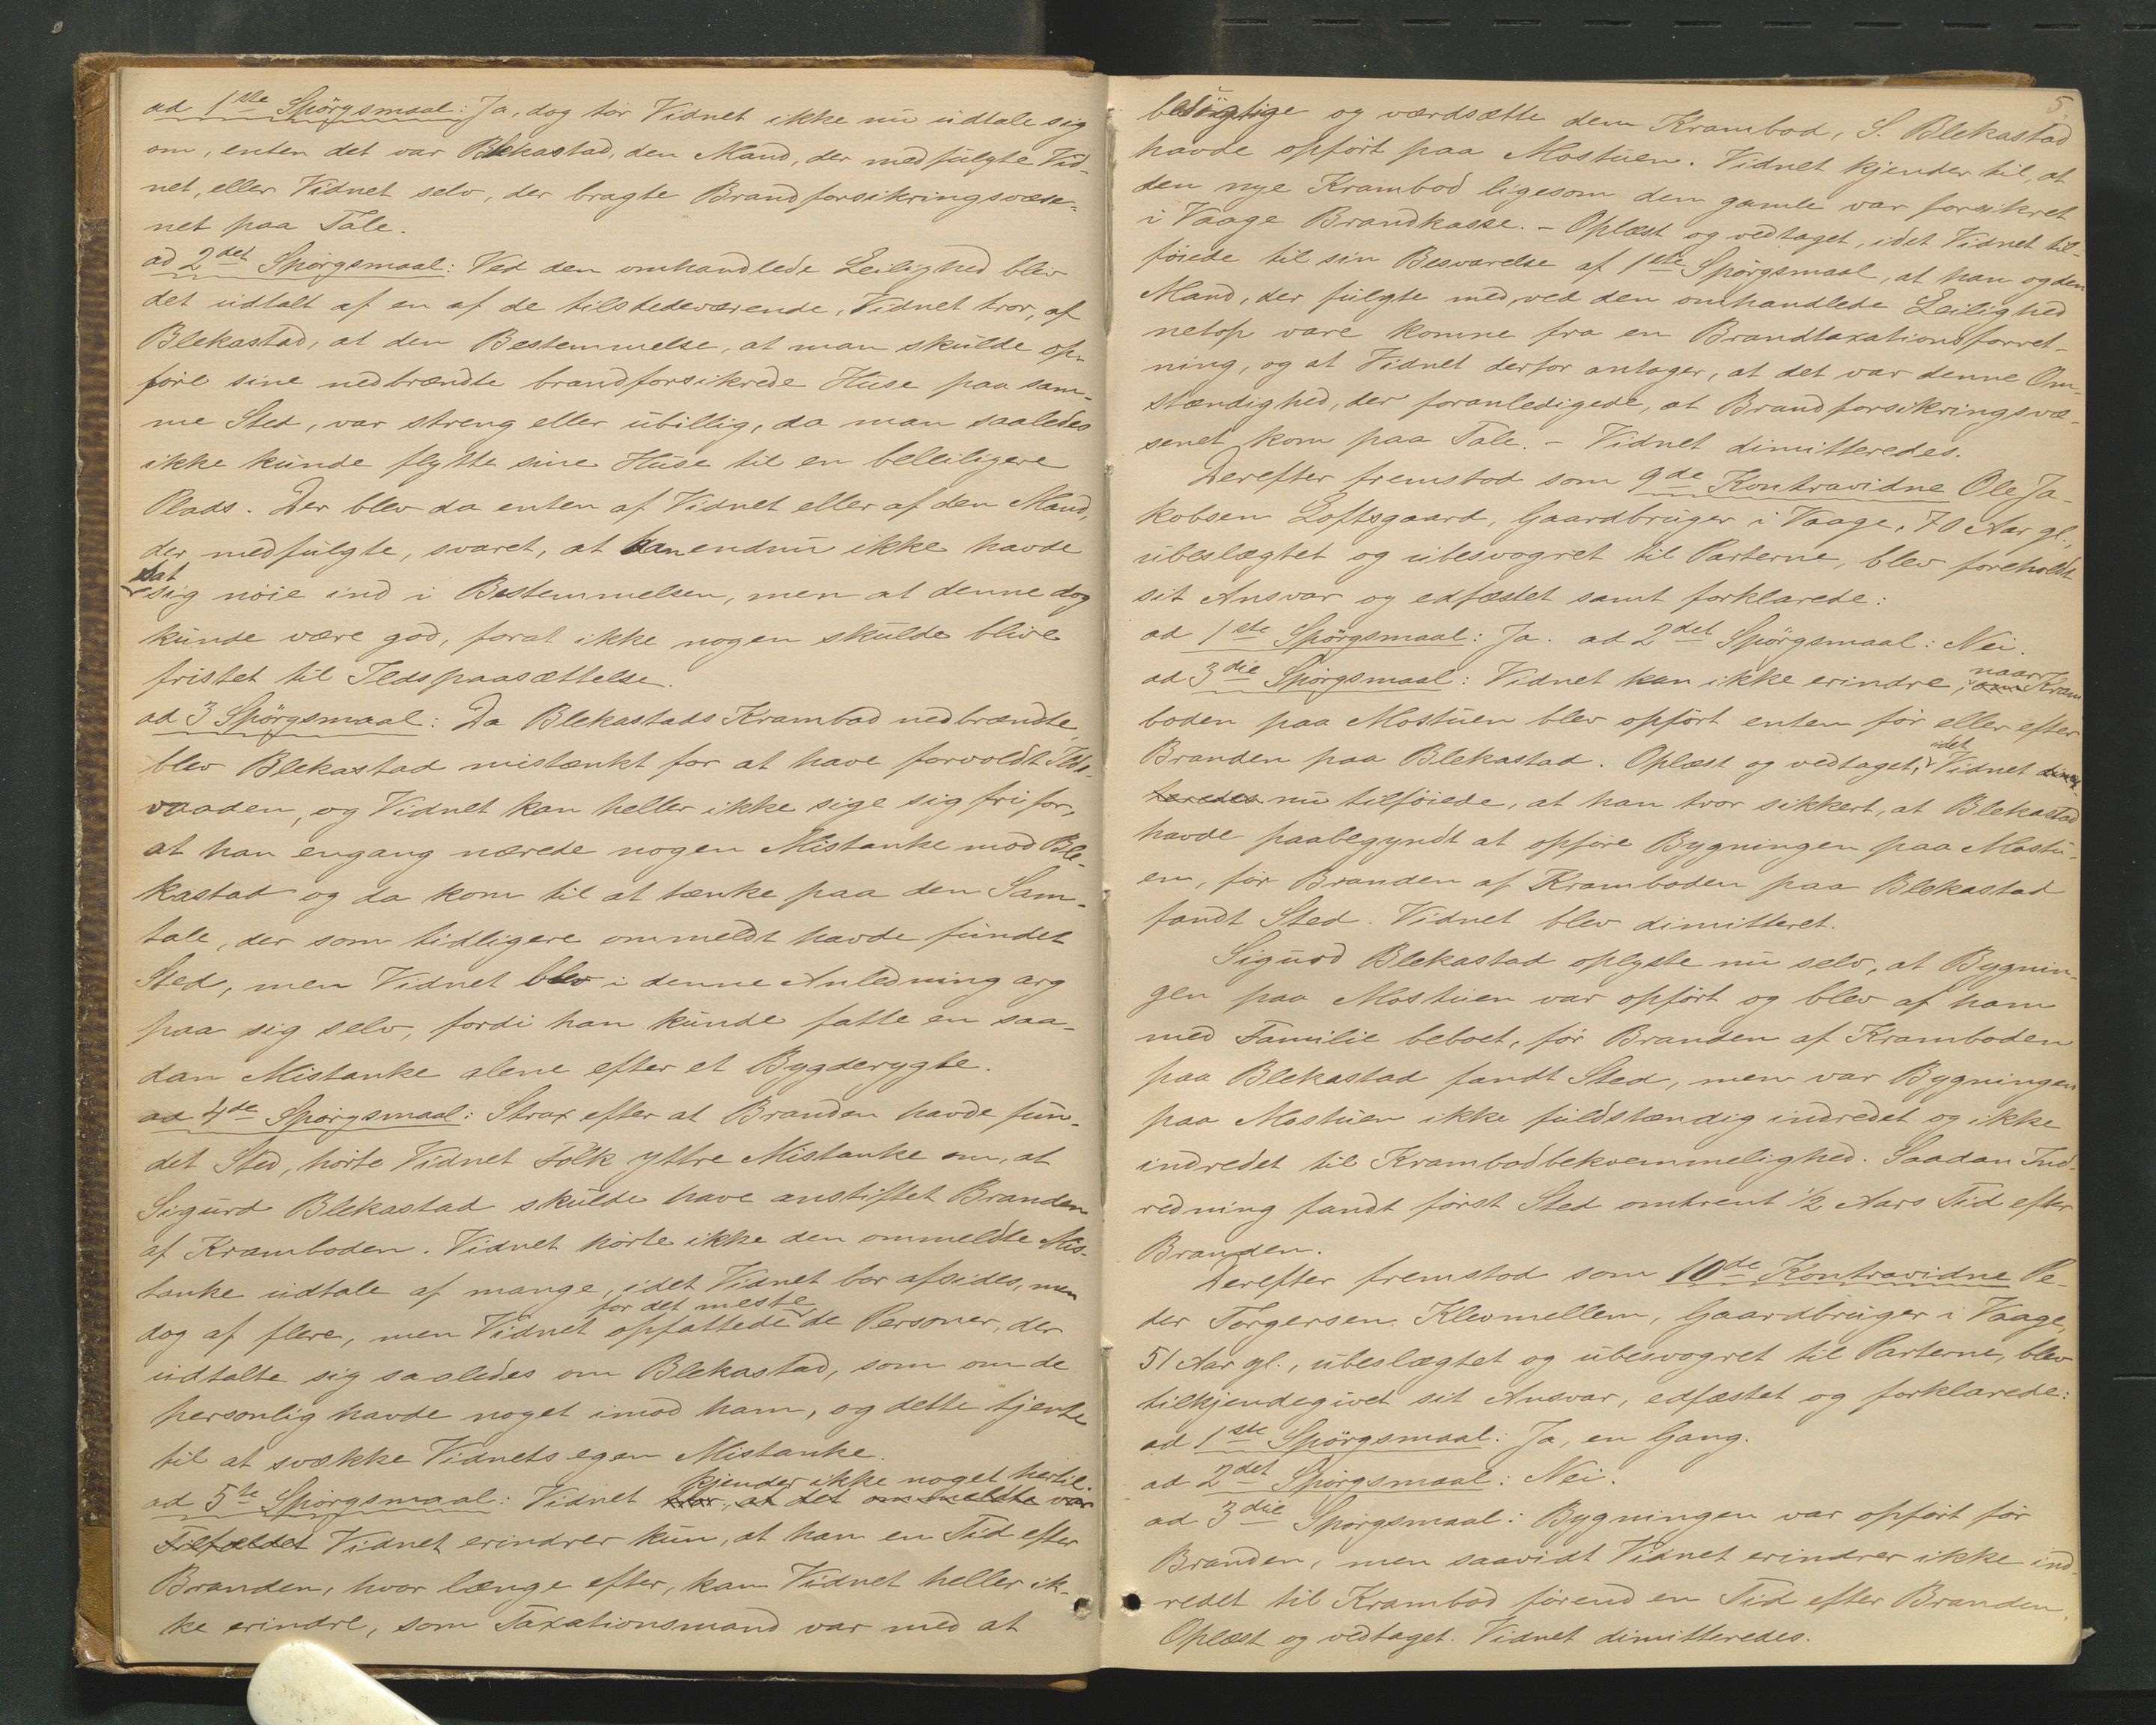 ad 1ste Spörgsmaal: Ja, dog tör Vidnet ikke nu udtale sig
om, enten det var Blekastad, den Mand, der medfulgte Vid-
net, eller Vidnet selv, der bragte Brandforsikringsvæse-
net paa Tale.
ad 2det Spörgsmaal: Ved den omhandlede Leilighed blev
det udtalt af en af de tilstedeværende, Vidnet tror, af
Blekastad, at den Bestemmelse, at man skulde op-
före sine nedbrændte brandforsikrede Huse paa sam-
me Sted, var streng eller ubillig, da man saaledes
ikke kunde flytte sine Huse til en beleiligere
Plads. Der blev da enten af Vidnet eller af den Mand,
der medfulgte, svaret, at han endnu ikke havde
sat
sig nöie ind i Bestemmelsen, men at denne dog
kunde være god, forat ikke nogen skulde blive
fristet til Ildspaasættelse.
ad 3 Spörgsmaal: Da Blekastads Krambod nedbrændte,
blev Blekastad mistænkt for at have forvoldt Ilds-
vaaden, og Vidnet kan heller ikke sige sig fri for,
at han engang nærede nogen Mistanke mod Ble-
kastad og da kom til at tænke paa den Sam-
tale, der som tidligere ommeldt havde fundet
Sted, men Vidnet blev i denne Anledning arg
paa sig selv, fordi han kunde fatte en saa-
dan Mistanke alene efter et Bygderygte.
ad 4de Spörgsmaal: Strax efter at Branden havde fun-
det Sted, hörte Vidnet Folk yttre Mistanke om, at
Sigurd Blekastad skulde have anstiftet Branden
af Kramboden. Vidnet hörte ikke den ommeldte Mis-
tanke udtale af mange, idet Vidnet bor afsides, men
for det meste
dog af flere, men Vidnet opfattede de Personer, der
udtalte sig saaledes om Blekastad, som om de
personlig havde noget imod ham, og dette tjente
til at svække Vidnets egen Mistanke.
kjender ikke noget hertil.
ad 5te Spörgsmaal: Vidnet tror, at det ommeldte var
Tilfældet Vidnet erindrer kun, at han en Tid efter
Branden, hvor længe efter, kan Vidnet heller ik-
ke erindre, som Taxationsmand var med at
5.
besigtige og værdsætte den Krambod, S. Blekastad
havde opfört paa Mostuen. Vidnet kjender til, at
den nye Krambod ligesom den gamle var forsikret
i Vaage Brandkasse. - Oplæst og vedtaget, idet Vidnet til-
föiede til sin Besvarelse af 1ste Spörgsmaal, at han og den
Mand, der fulgte med, ved den omhandlede Leilighed
netop vare komne fra en Brandtaxationsforret-
ning, og at Vidnet derfor antager, at det var denne Om-
stændighed, der foranledigede, at Brandforsikringsvæ-
senet kom paa Tale. - Vidnet dimitteredes.
Derefter fremstod som 9de Kontravidne Ole Ja-
kobsen Loftsgaard, Gaardbruger i Vaage, 70 Aar gl.,
ubeslægtet og ubesvogret til Parterne, blev foreholdt
sit Ansvar og edfæstet samt forklarede:
ad 1ste Spörgsmaal: Ja. ad 2det Spörgsmaal: Nei.
naar
ad 3die Spörgsmaal: Vidnet kan ikke erindre, om Kram
boden paa Mostuen blev opfört enten för eller efter
idet
Branden paa Blekastad. Oplæst og vedtaget, Vidnet dimit-
teredes nu tilföiede, at han tror sikkert, at Blekastad
havde paabegyndt at opföre Bygningen paa Mostu-
en, för Branden af Kramboden paa Blekastad
fandt Sted. Vidnet blev dimitteret.
Sigurd Blekastad oplyste nu selv, at Bygnin-
gen paa Mostuen var opfört og blev af ham
med Familie beboet, för Branden af Kramboden
paa Blekastad fandt Sted, men var Bygningen
paa Mostuen ikke fuldstændig indredet og ikke
indredet til Krambodbekvemmelighed. Saadan Ind-
redning fandt först Sted omtrent 1/2 Aars Tid efter
Branden.
Derefter fremstod som 10de Kontravidne Pe-
der Torgersen Klevmellem, Gaardbruger i Vaage,
51 Aar gl., ubeslægtet og ubesvogret til Parterne, blev
tilkjendegivet sit Ansvar, edfæstet og forklarede:
ad 1ste Spörgsmaal: Ja, en Gang.
ad 2det Spörgsmaal: Nei.
ad 3die Spörgsmaal: Bygningen var opfört för
Branden, men saavidt Vidnet erindrer ikke ind-
redet til Krambod förend en Tid efter Branden.
Oplæst og vedtaget. Vidnet dimitteredes.